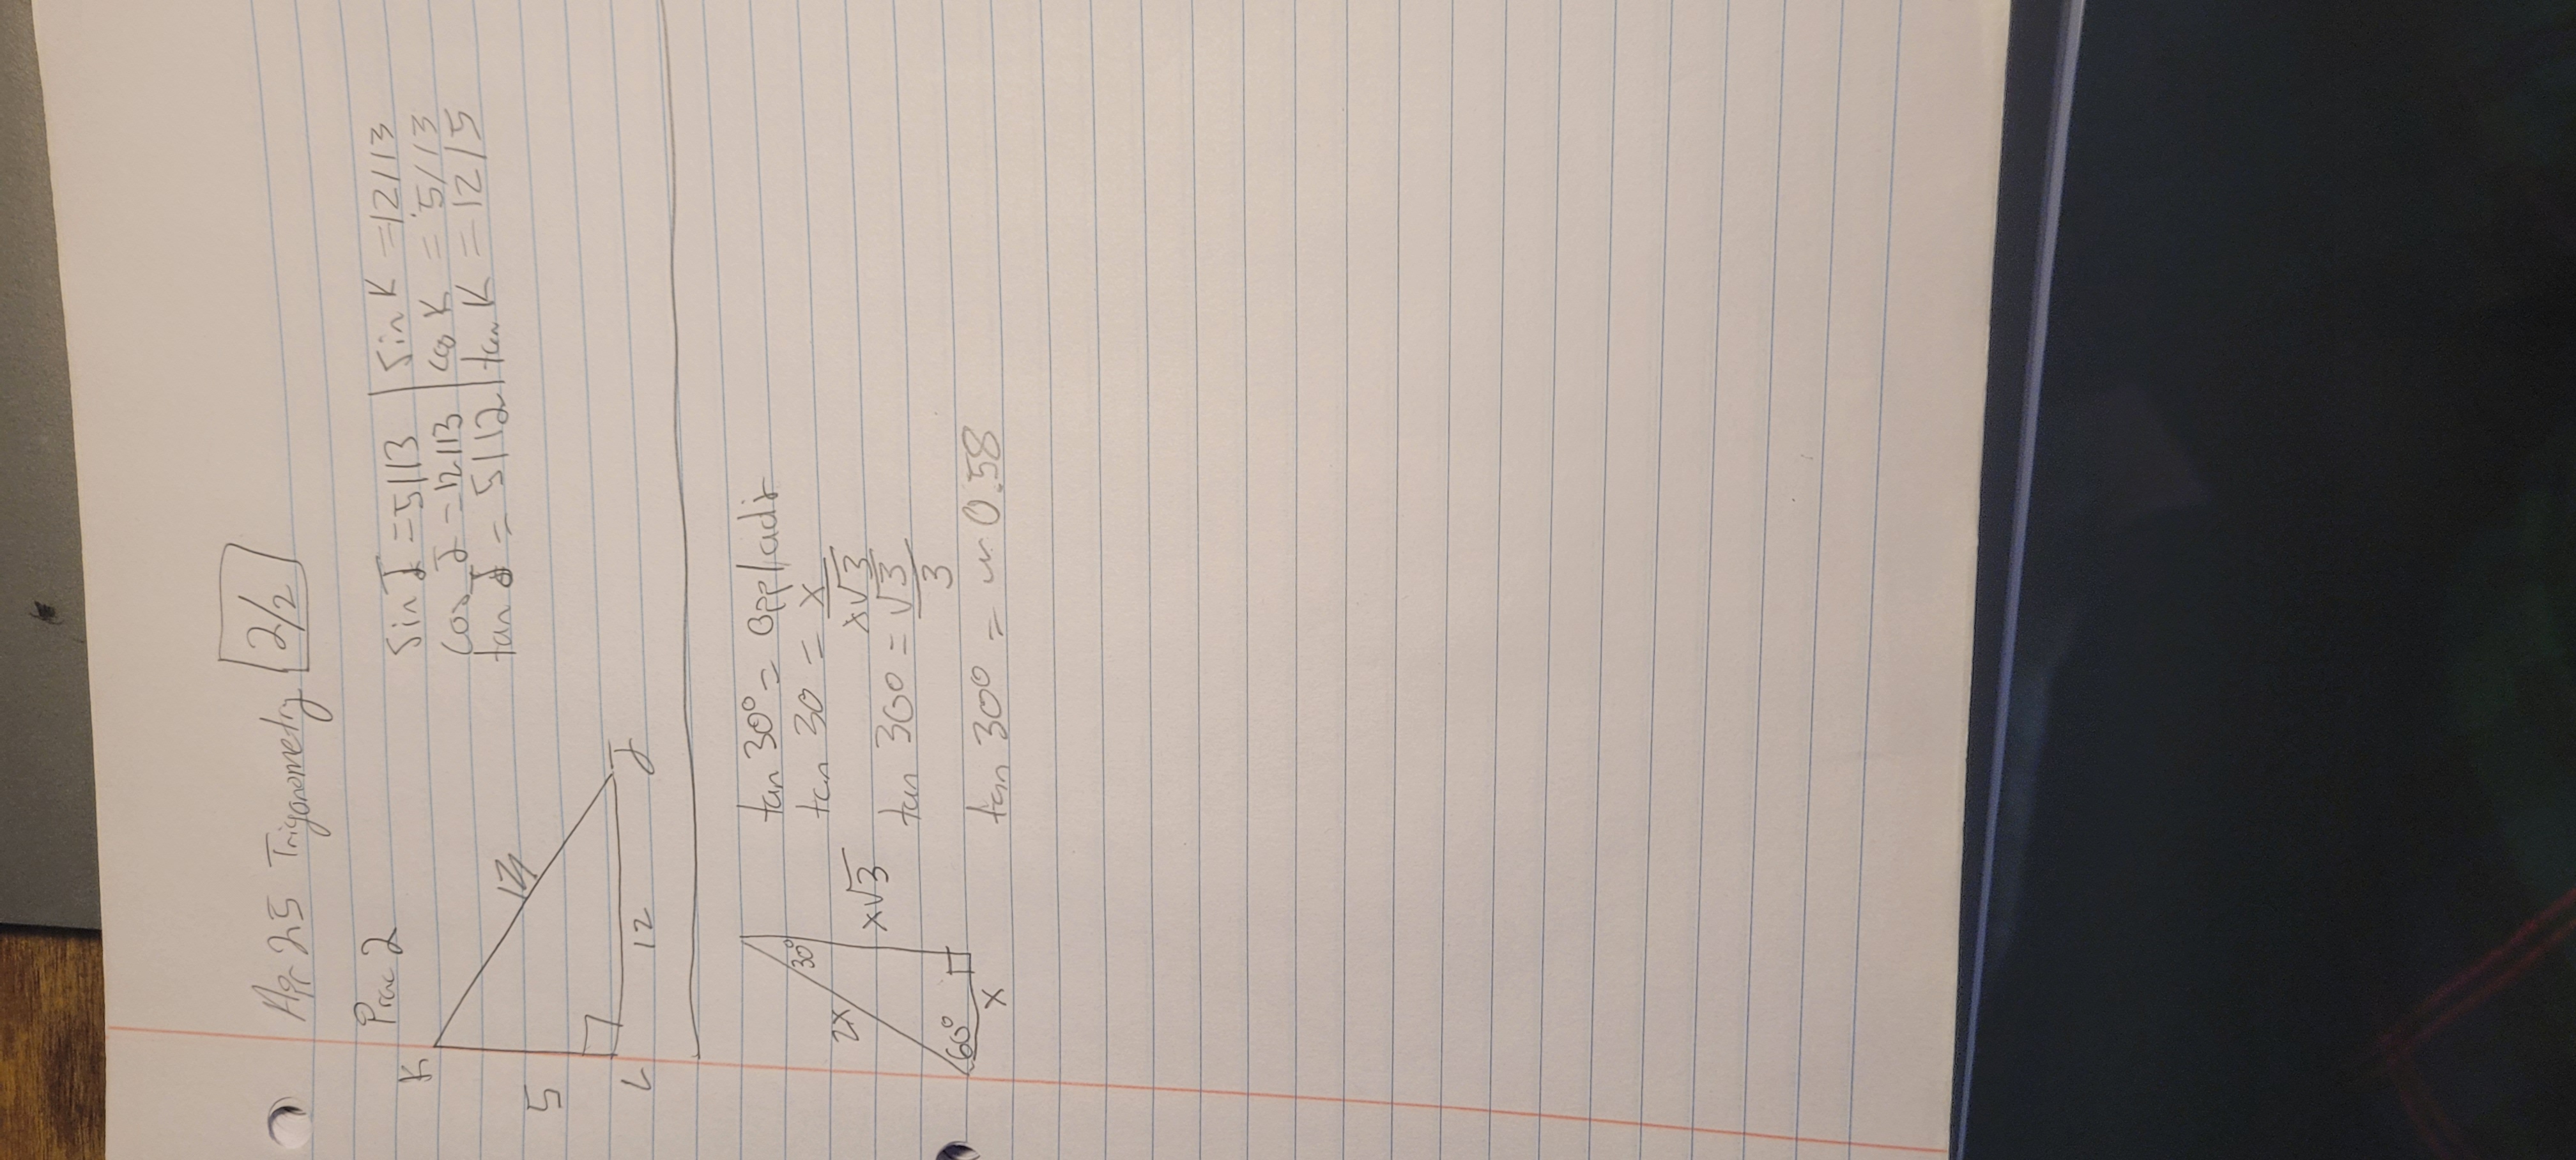 Apr 25 Trigonometry 2/2
Prac 2
K
5
13
L
12
J
sin J = 5/13 | sin K = 12/13
cos J = 12/13 | cos K = 5/13
tan J = 5/12 | tan K = 12/5
30°
2x
x√3
60°
x
tan 30° = opp/adj
tan 30 = x
x√3
tan 30° = √3
3
tan 30° = ~ 0.58